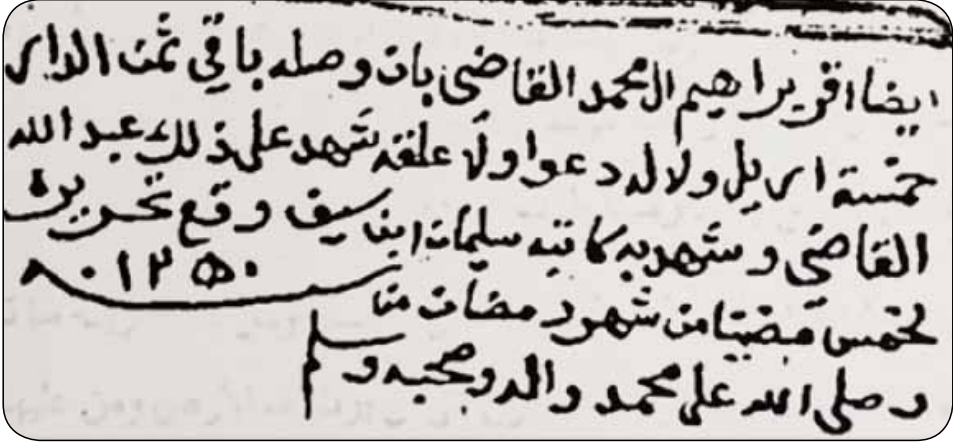 ايضا اقر براهيم ال محمد القاضي بان وصله باقي ثمن الدار
خمسة اريل ولا له دعوا ولا علقه شهد على ذلك عبد الله
القاضي وشهد به كاتبه سليمان ابن سيف وقع تحريره
لخمس مضيتا من شهود مضان من ١٣٥٠
وصلى الله على محمد واله وصحبه وسلم